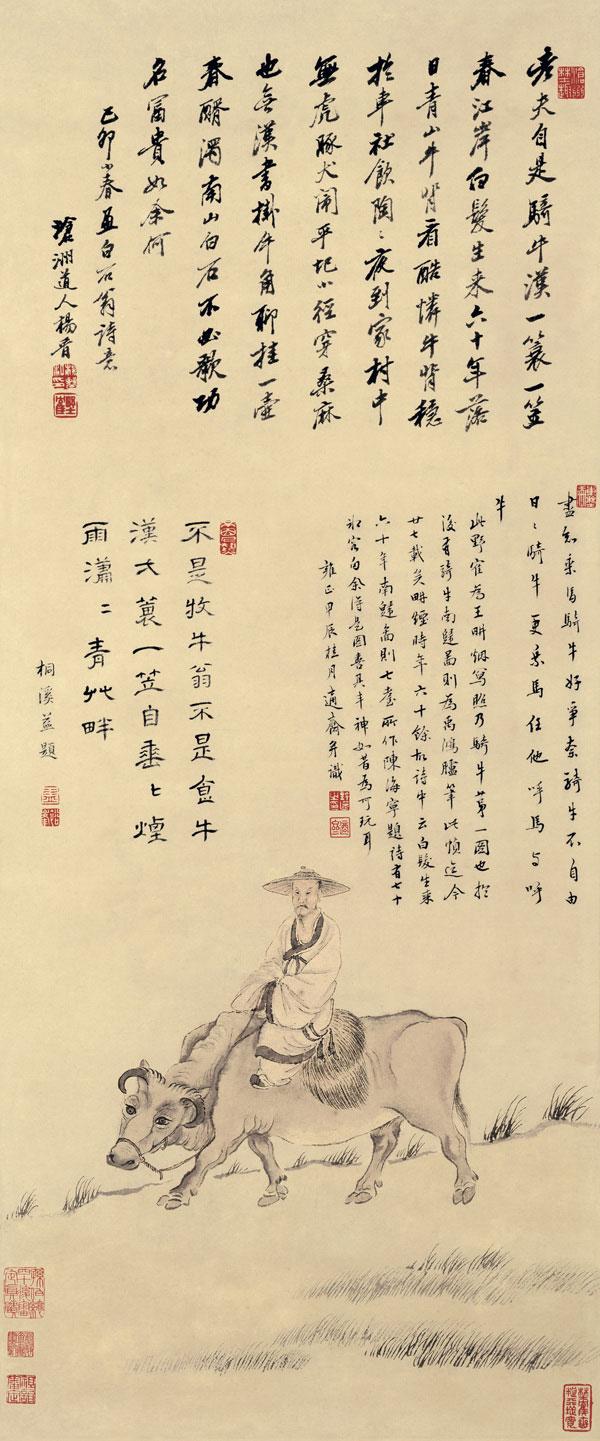 老夫自是騎牛漢一蓑一笠
春江岸白髮生來六十年落
日青山牛背看酷憐牛背穩
於車社飲陶〻夜到家村中
無虎豚犬鬧平圯小徑穿桑麻
也無漢書掛牛角聊挂一壺
春醑濁南山白石不必歌功
名富貴如余何
己卯小春畫白石翁詩意
洲道人楊晉
盡知乘馬騎牛好爭奈騎牛不自由
日〻騎牛更乘馬任他呼馬與呼
牛
此野隺為王畊烟寫照乃騎牛第一圖也於
後有騎牛南圖則為禹鴻臚筆此幀迄今
廿七載矣畊煙時年六十餘故詩中云白髮生來
六十年南圖則七所作陳海寧題詩有七十
客句余得是圖喜其丰神如昔為可玩耳
雍正甲辰桂月適齋并識
不是牧牛翁不是食牛
漢大蓑一笠自垂〻煙
雨瀟〻青艸畔
桐溪益題